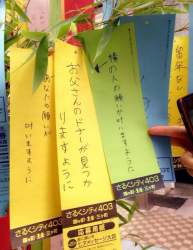 隣の人の願いが叶いますように
お父さんのドナーが見つか
りますように
あなたの願いが
叶いますように
さるくシティ403
さるくシティ403
さるくシティ403
応募用紙